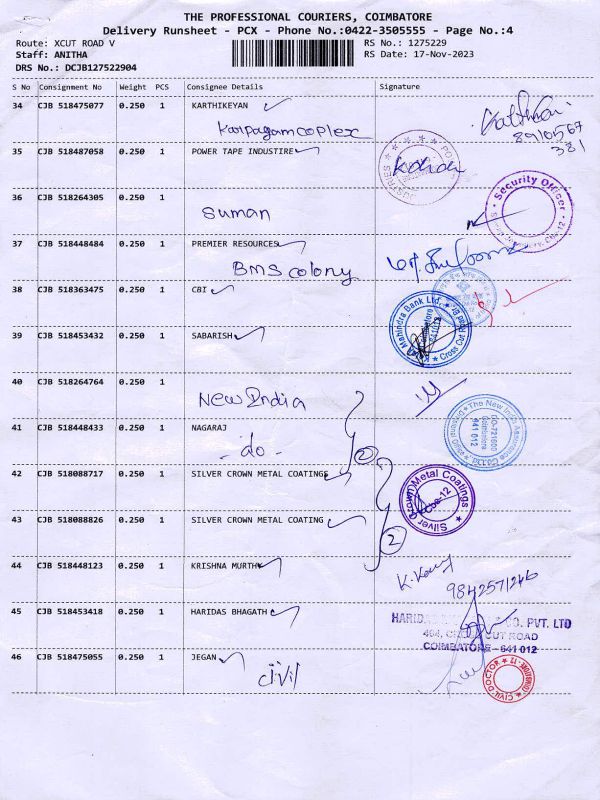 THE PROFESSIONAL COURIERS, COIMBATORE
Delivery Runsheet - PCX - Phone No.:0422-3505555 - Page No.:4
Route: XCUT ROAD V RS No.: 1275229
Staff: ANITHA RS Date: 17-Nov-2023
DRS No.: DCJB127522904
S No Consignment No Weight PCS Consignee Details Signature
34 CJB 518475077 0.250 1 KARTHIKEYAN
Karpagam coplex
35 CJB 518487058 0.250 1 POWER TAPE INDUSTIRE
36 CJB 518264305 0.250 1
Suman
Security Officer
37 CJB 518448484 0.250 1 PREMIER RESOURCES
BMS colony
38 CJB 518363475 0.250 1 CBI
39 CJB 518453432 0.250 1 SABARISH
Mahindra Bank Ltd.
40 CJB 518264764 0.250 1
New India
The New India Assurance
Coimbatore
641 012
41 CJB 518448433 0.250 1 NAGARAJ
- do -
42 CJB 518088717 0.250 1 SILVER CROWN METAL COATINGS
Silver Crown Metal Coatings
Cbe-12
43 CJB 518088826 0.250 1 SILVER CROWN METAL COATING
2
44 CJB 518448123 0.250 1 KRISHNA MURTHY
9842571246
45 CJB 518453418 0.250 1 HARIDAS BHAGATH
CO. PVT. LTD
CUT ROAD
COIMBATORE - 641 012
46 CJB 518475055 0.250 1 JEGAN
civil
CIVIL DOCTOR